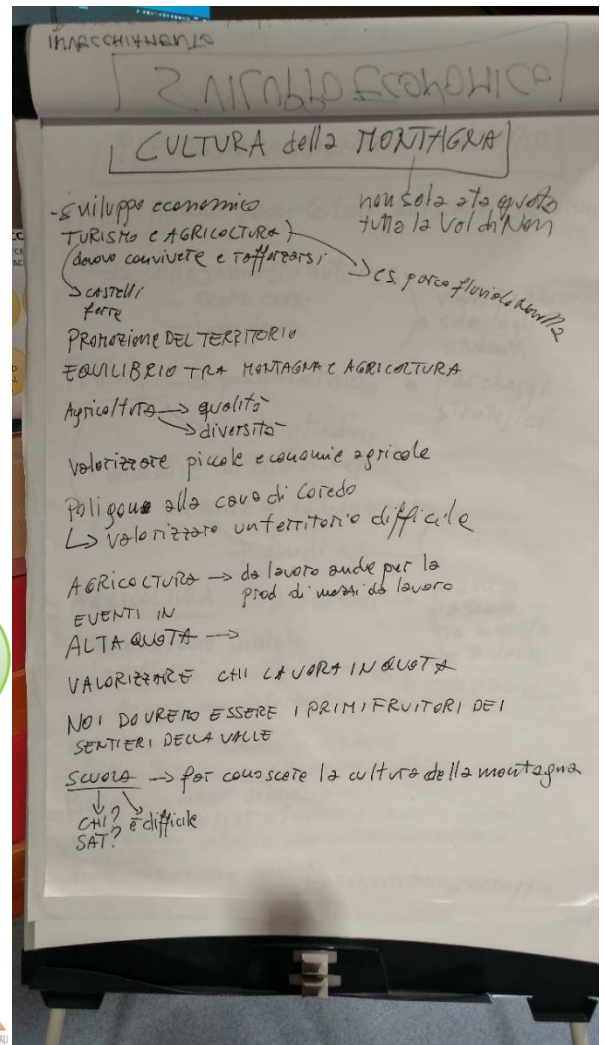 INVECCHIAMENTO
SVILUPPO ECONOMICO
CULTURA della MONTAGNA
non solo alta quota
tutta la Val di Non
- Sviluppo economico
TURISMO e AGRICOLTURA
devono convivere e rafforzarsi
→ es. parco fluviale Novella
→ CASTELLI
ferre
PROMOZIONE DEL TERRITORIO
EQUILIBRIO TRA MONTAGNA e AGRICOLTURA
Agricoltura → qualità
→ diversità
Valorizzare piccole economie agricole
Poligono alla cava di Coredo
↳ valorizzare un territorio difficile
AGRICOLTURA → da lavoro anche per la
prod di mezzi da lavoro
EVENTI IN
ALTA QUOTA →
VALORIZZARE CHI LAVORA IN QUOTA
NOI DOVREMO ESSERE I PRIMI FRUITORI DEI
SENTIERI DELLA VALLE
SCUOLA → per conoscere la cultura della montagna
CHI? è difficile
SAT?